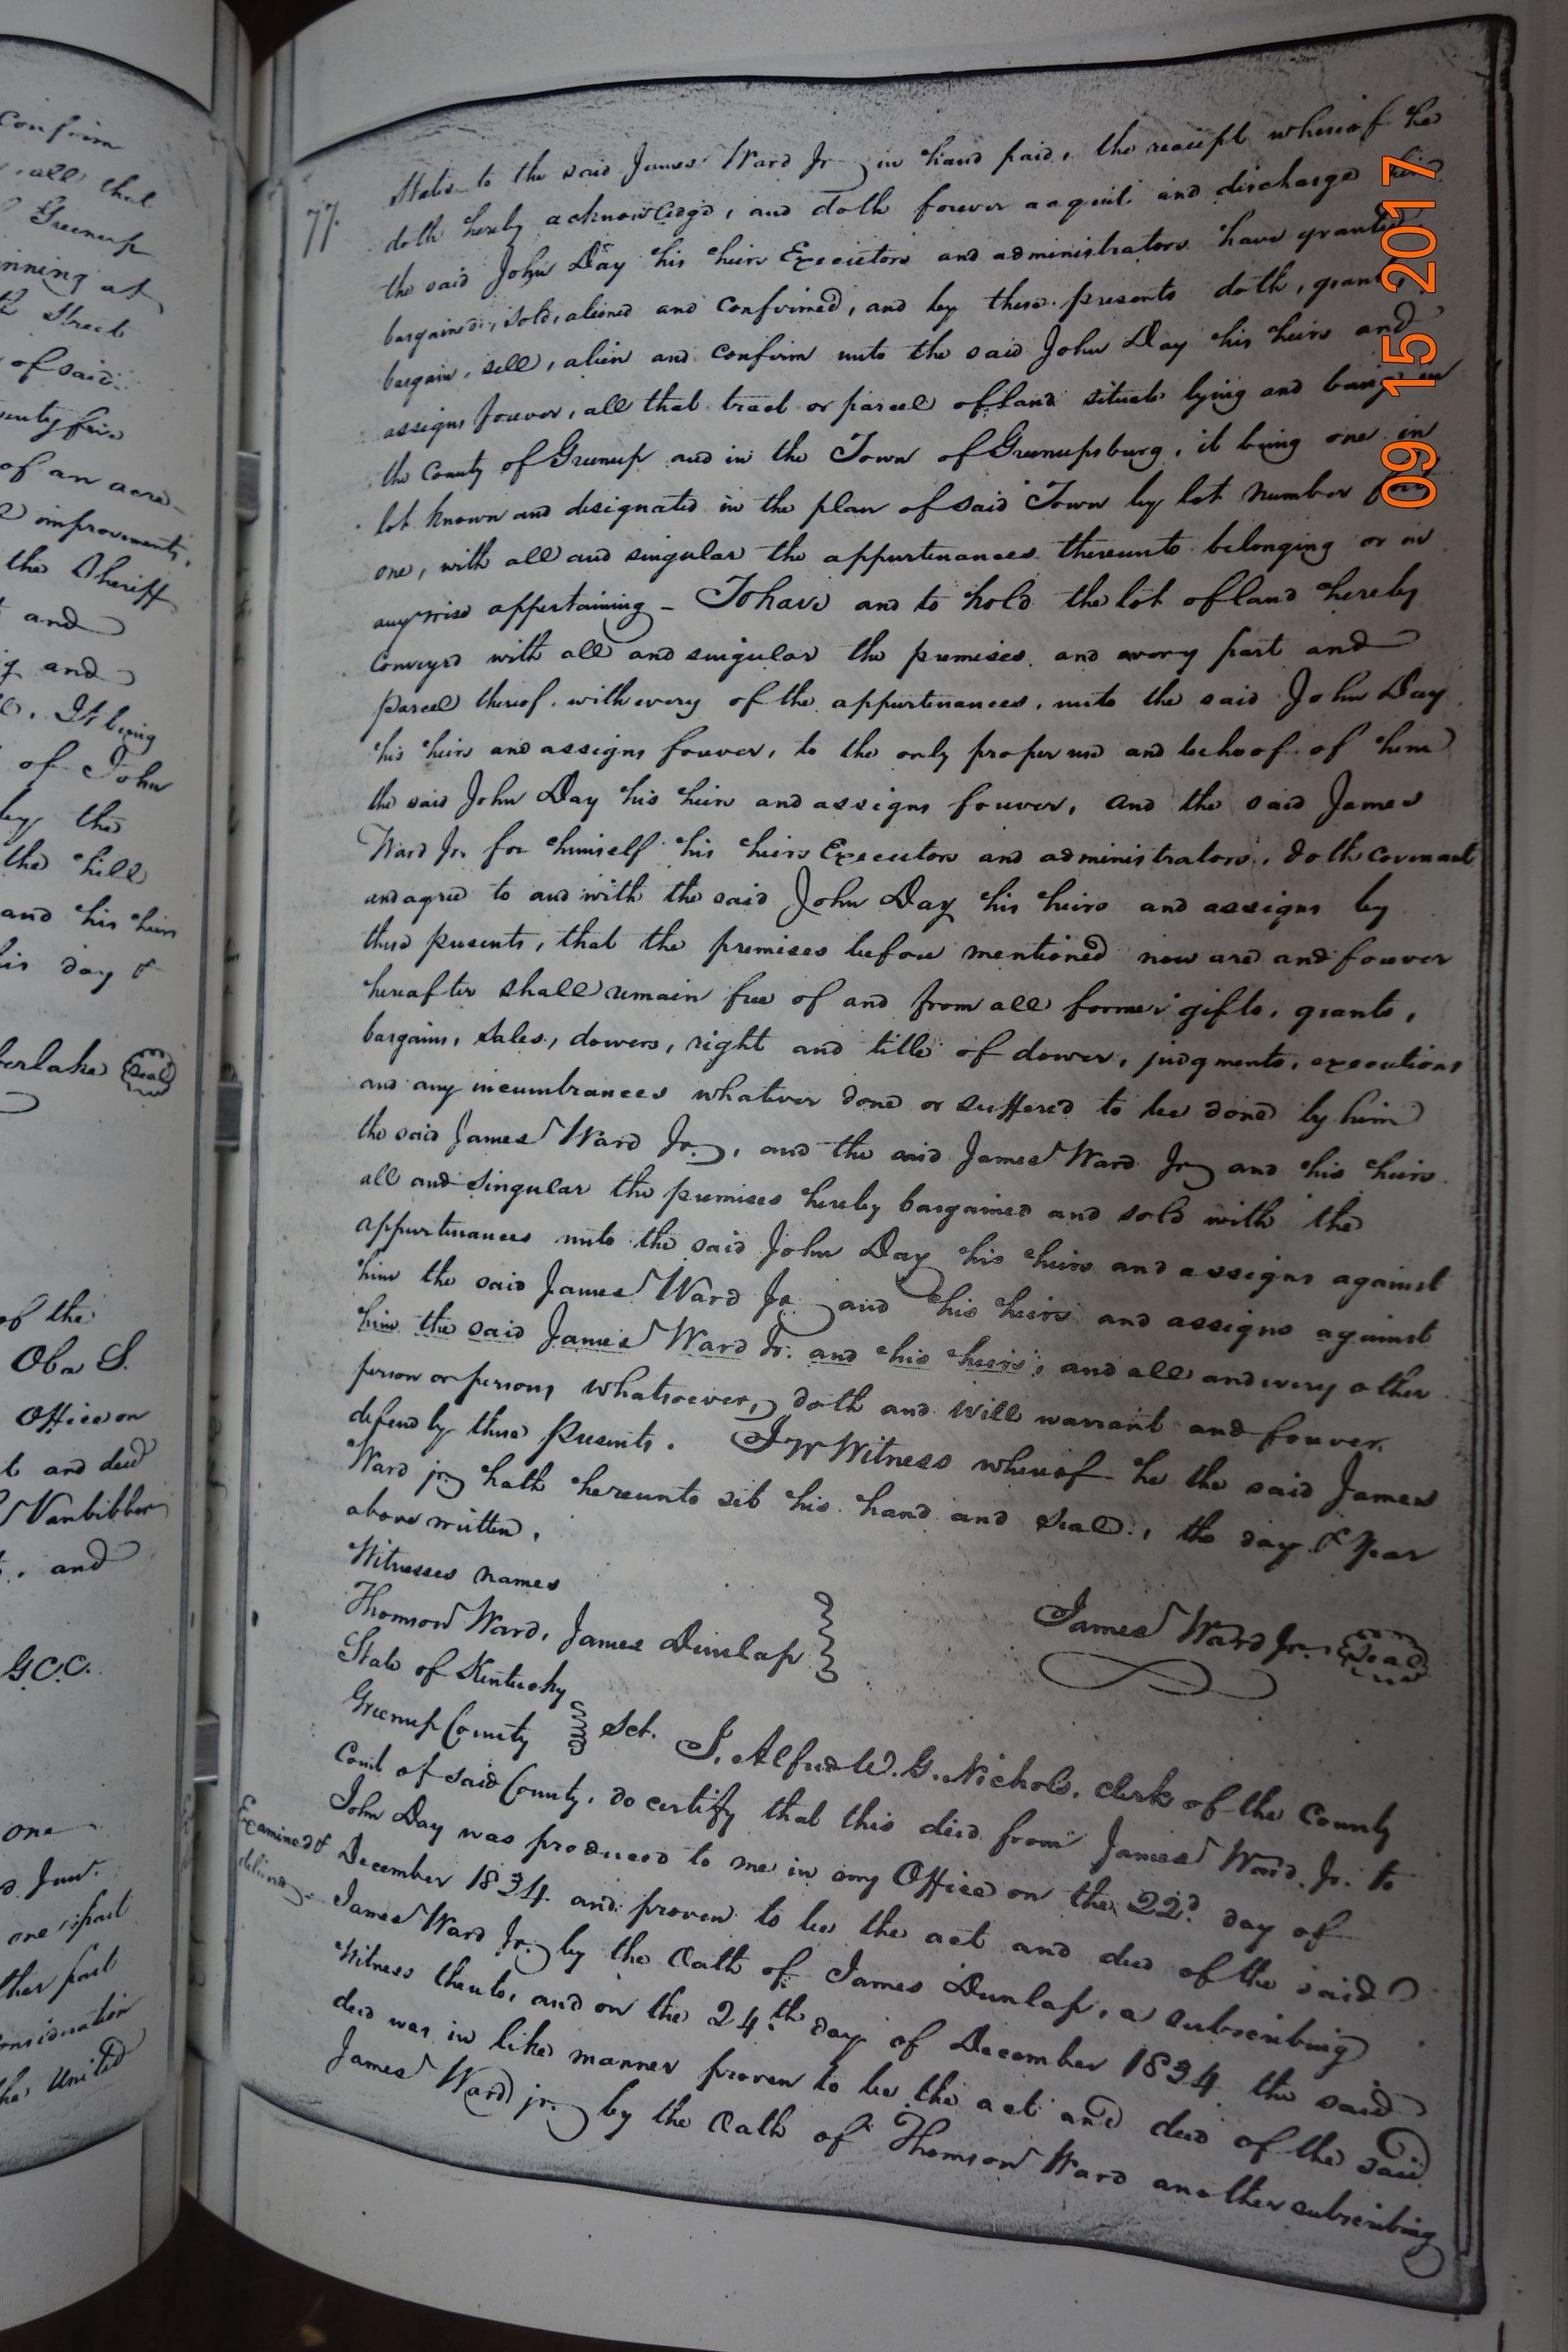 confirm
, all that
Greenup
nning at
Street
of said
enty five
of an acre
improvements,
the Sheriff
and
and
. It being
of John
by the
the hill
and his heirs
day &
erlake Seal
of the
Oba S.
Office on
and deed
Vanbibber
. and
G.C.C.
one
Jun.
one part
ther part
onsideration
the United
77.
States to the said James Ward Jr in hand paid, the receipt whereof he
doth hereby acknowledge, and doth forever acquit and discharge him
the said John Day his heirs Executors and administrators have granted
bargained, sold, aliened and confirmed, and by these presents doth, grant
bargain, sell, alien and confirm unto the said John Day his heirs and
assigns forever, all that tract or parcel of land situate lying and being in
the County of Greenup and in the Town of Greenupsburg, it being one in
lot known and designated in the plan of said Town by lot number
one, with all and singular the appurtenances thereunto belonging or in
anywise appertaining - To have and to hold the lot of land hereby
conveyed with all and singular the premises and every part and
parcel thereof. with every of the appurtenances, unto the said John Day
his heirs and assigns forever, to the only proper use and behoof of him
the said John Day his heirs and assigns forever, and the said James
Ward Jr. for himself his heirs Executors and administrators, doth covenant
and agree to and with the said John Day his heirs and assigns by
these presents, that the premises before mentioned now are and forever
hereafter shall remain free of and from all former gifts, grants,
bargains, sales, dowers, right and title of dower, judgments, executions
and any incumbrances whatever done or suffered to be done by him
the said James Ward Jr., and the said James Ward Jr and his heirs
all and singular the premises hereby bargained and sold with the
appurtenances unto the said John Day his heirs and assigns against
him the said James Ward Jr. and his heirs and assigns against
him the said James Ward Jr. and his heirs, and all and every other
person or persons whatsoever, doth and will warrant and forever
defend by these presents. In Witness whereof he the said James
Ward jr hath hereunto set his hand and seal, the day & year
above written.
Witnesses names
Thomson Ward, James Dunlap
James Ward Jr. Seal
State of Kentucky
Greenup County Sct. I. Alfred W. G. Nichols. clerk of the County
Court of said County, do certify that this deed from James Ward Jr. to
John Day was produced to me in my Office on the 22d. day of
Examined &
delivered
December 1834 and proven to be the act and deed of the said
James Ward Jr. by the Oath of James Dunlap, a subscribing
Witness thereto, and on the 24th day of December 1834 the said
deed was in like manner proven to be the act and deed of the said
James Ward jr. by the Oath of Thomson Ward another subscribing
09 15 2017